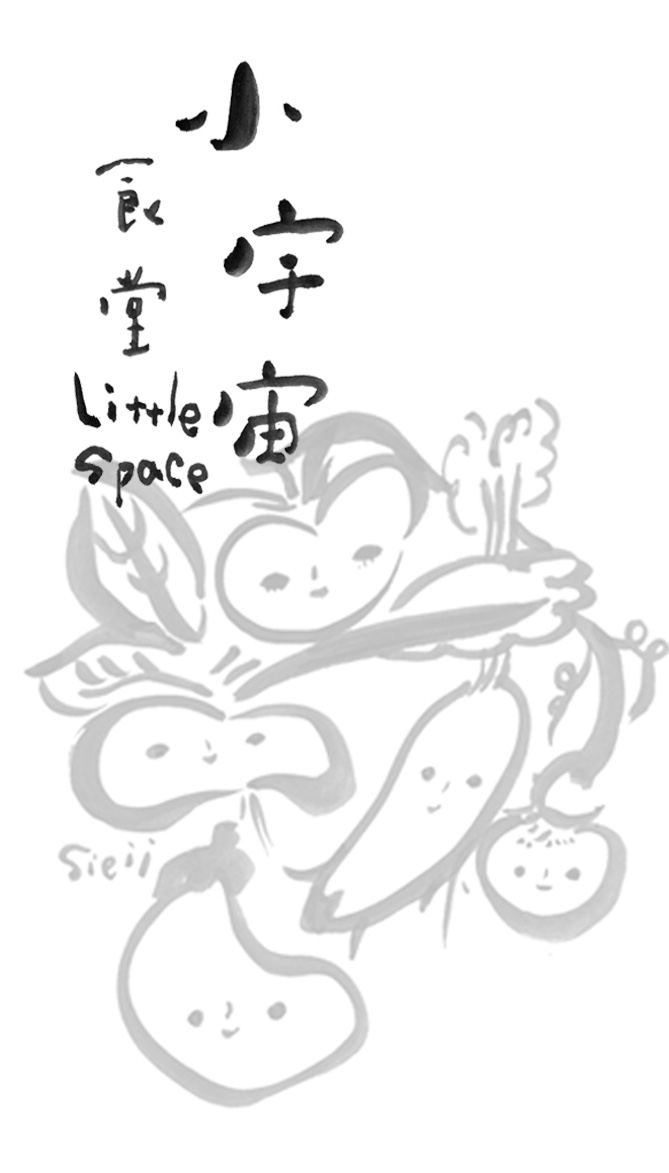 小宇宙
食堂
Little
Space
sieii